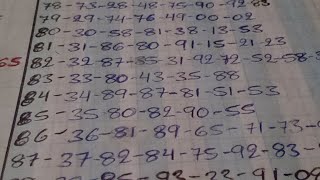 78-73-28-48-75-90-92-83
79-29-74-76-49-00-02
80-30-58-81-38-13-53
81-31-86-80-91-15-21-23
65 82-32-87-35-31-92-72-52-58-3
83-33-80-43-35-88
84-34-89-87-81-51-53
85-35-80-82-90-55
86-36-81-89-65-71-73-
87-37-82-84-75-92-83-
85-93-23-91-09